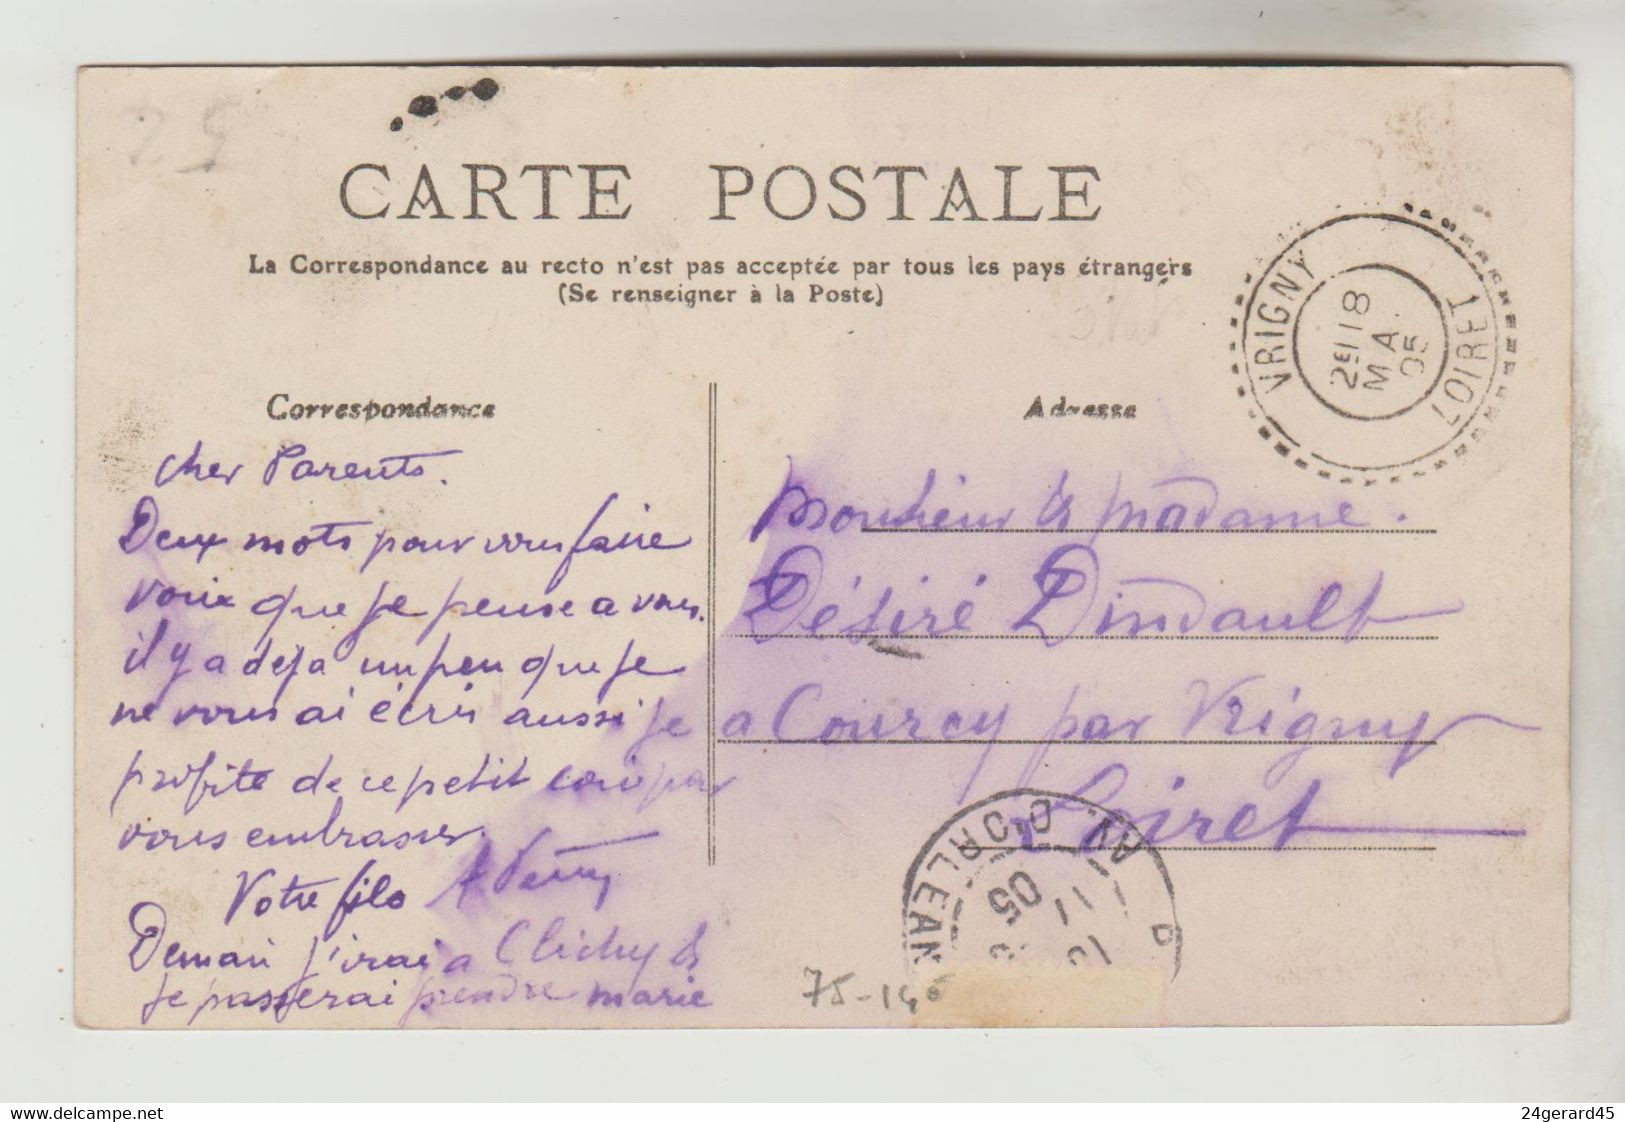 CARTE POSTALE
La Correspondance au recto n'est pas acceptée par tous les pays étrangers
(Se renseigner à la Poste)
VRIGNY
LOIRET
2E 18
MA.
05
Correspondance
Adresse
cher Parents.
Deux mots pour vous faire
voire que je pense a vous.
il y a deja un peu que je
ne vous ai écris aussi je
profite de ce petit coin pour
vous embrasser.
Votre fils
Demain j'irai a Clichy &
je passerai prendre marie
Monsieur & madame.
Désiré Dindault
a Courcy par Vrigny
Loiret
AV. D'ORLEAN
11
05
75-14
www.delcampe.net
24gerard45